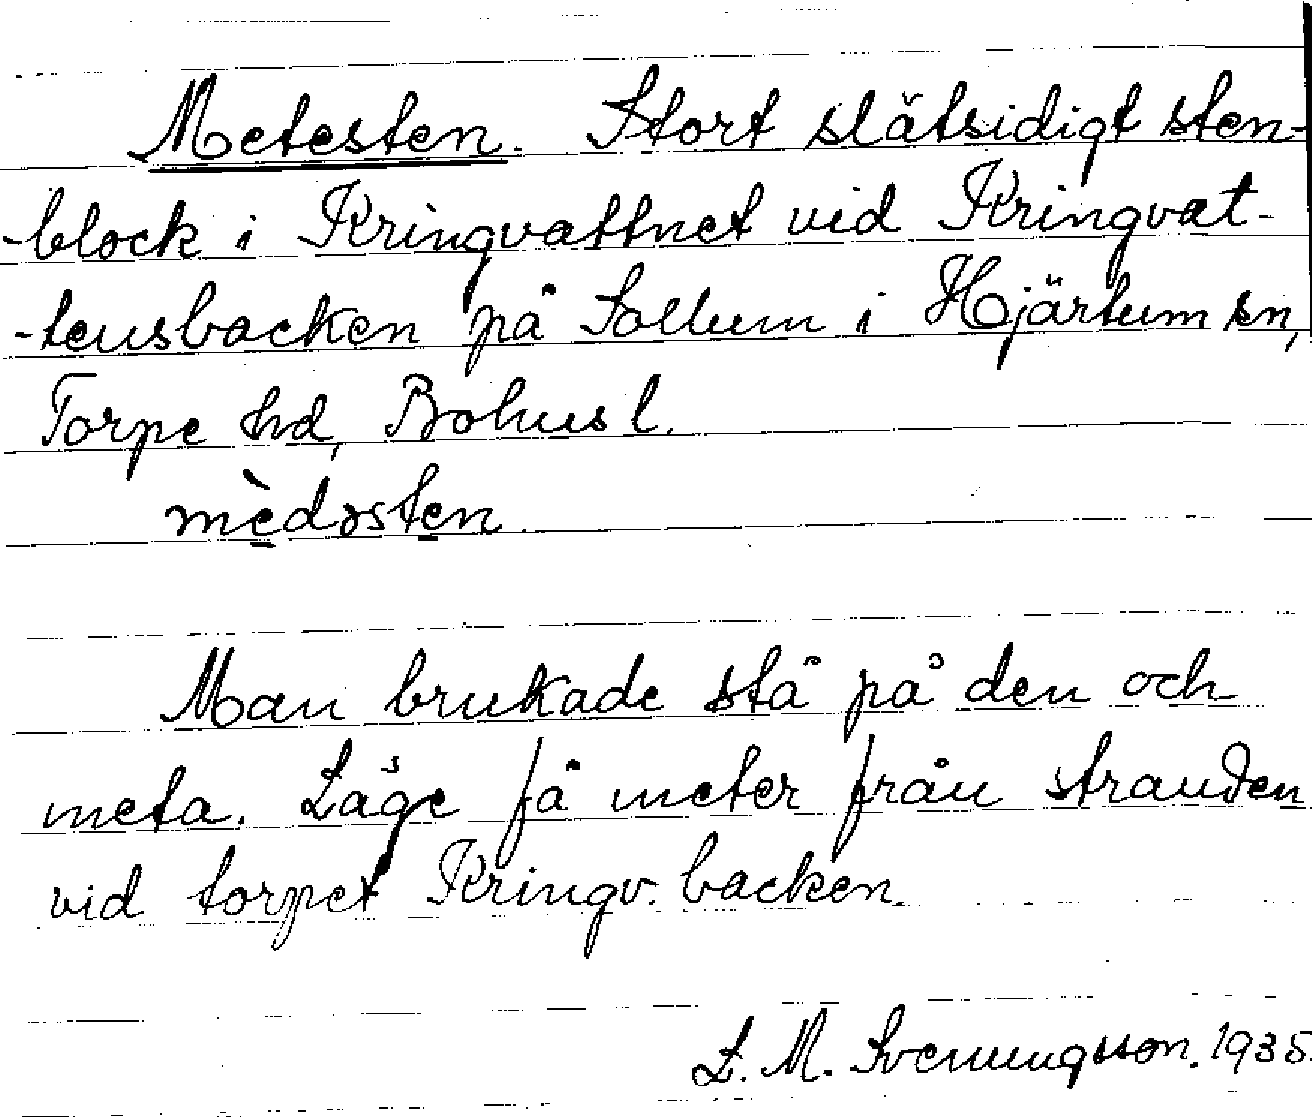 Metesten. Stort slätsidigt sten-
-block i Kringvattnet vid Kringvat-
-tensbacken på Sollum i Hjärtum sn,
Torpe hd, Bohusl.
mèdəsten
Man brukade stå på den och
meta. Låge få meter från stranden
vid torpet Kringv. backen.
L. M. Svenungsson. 1935.